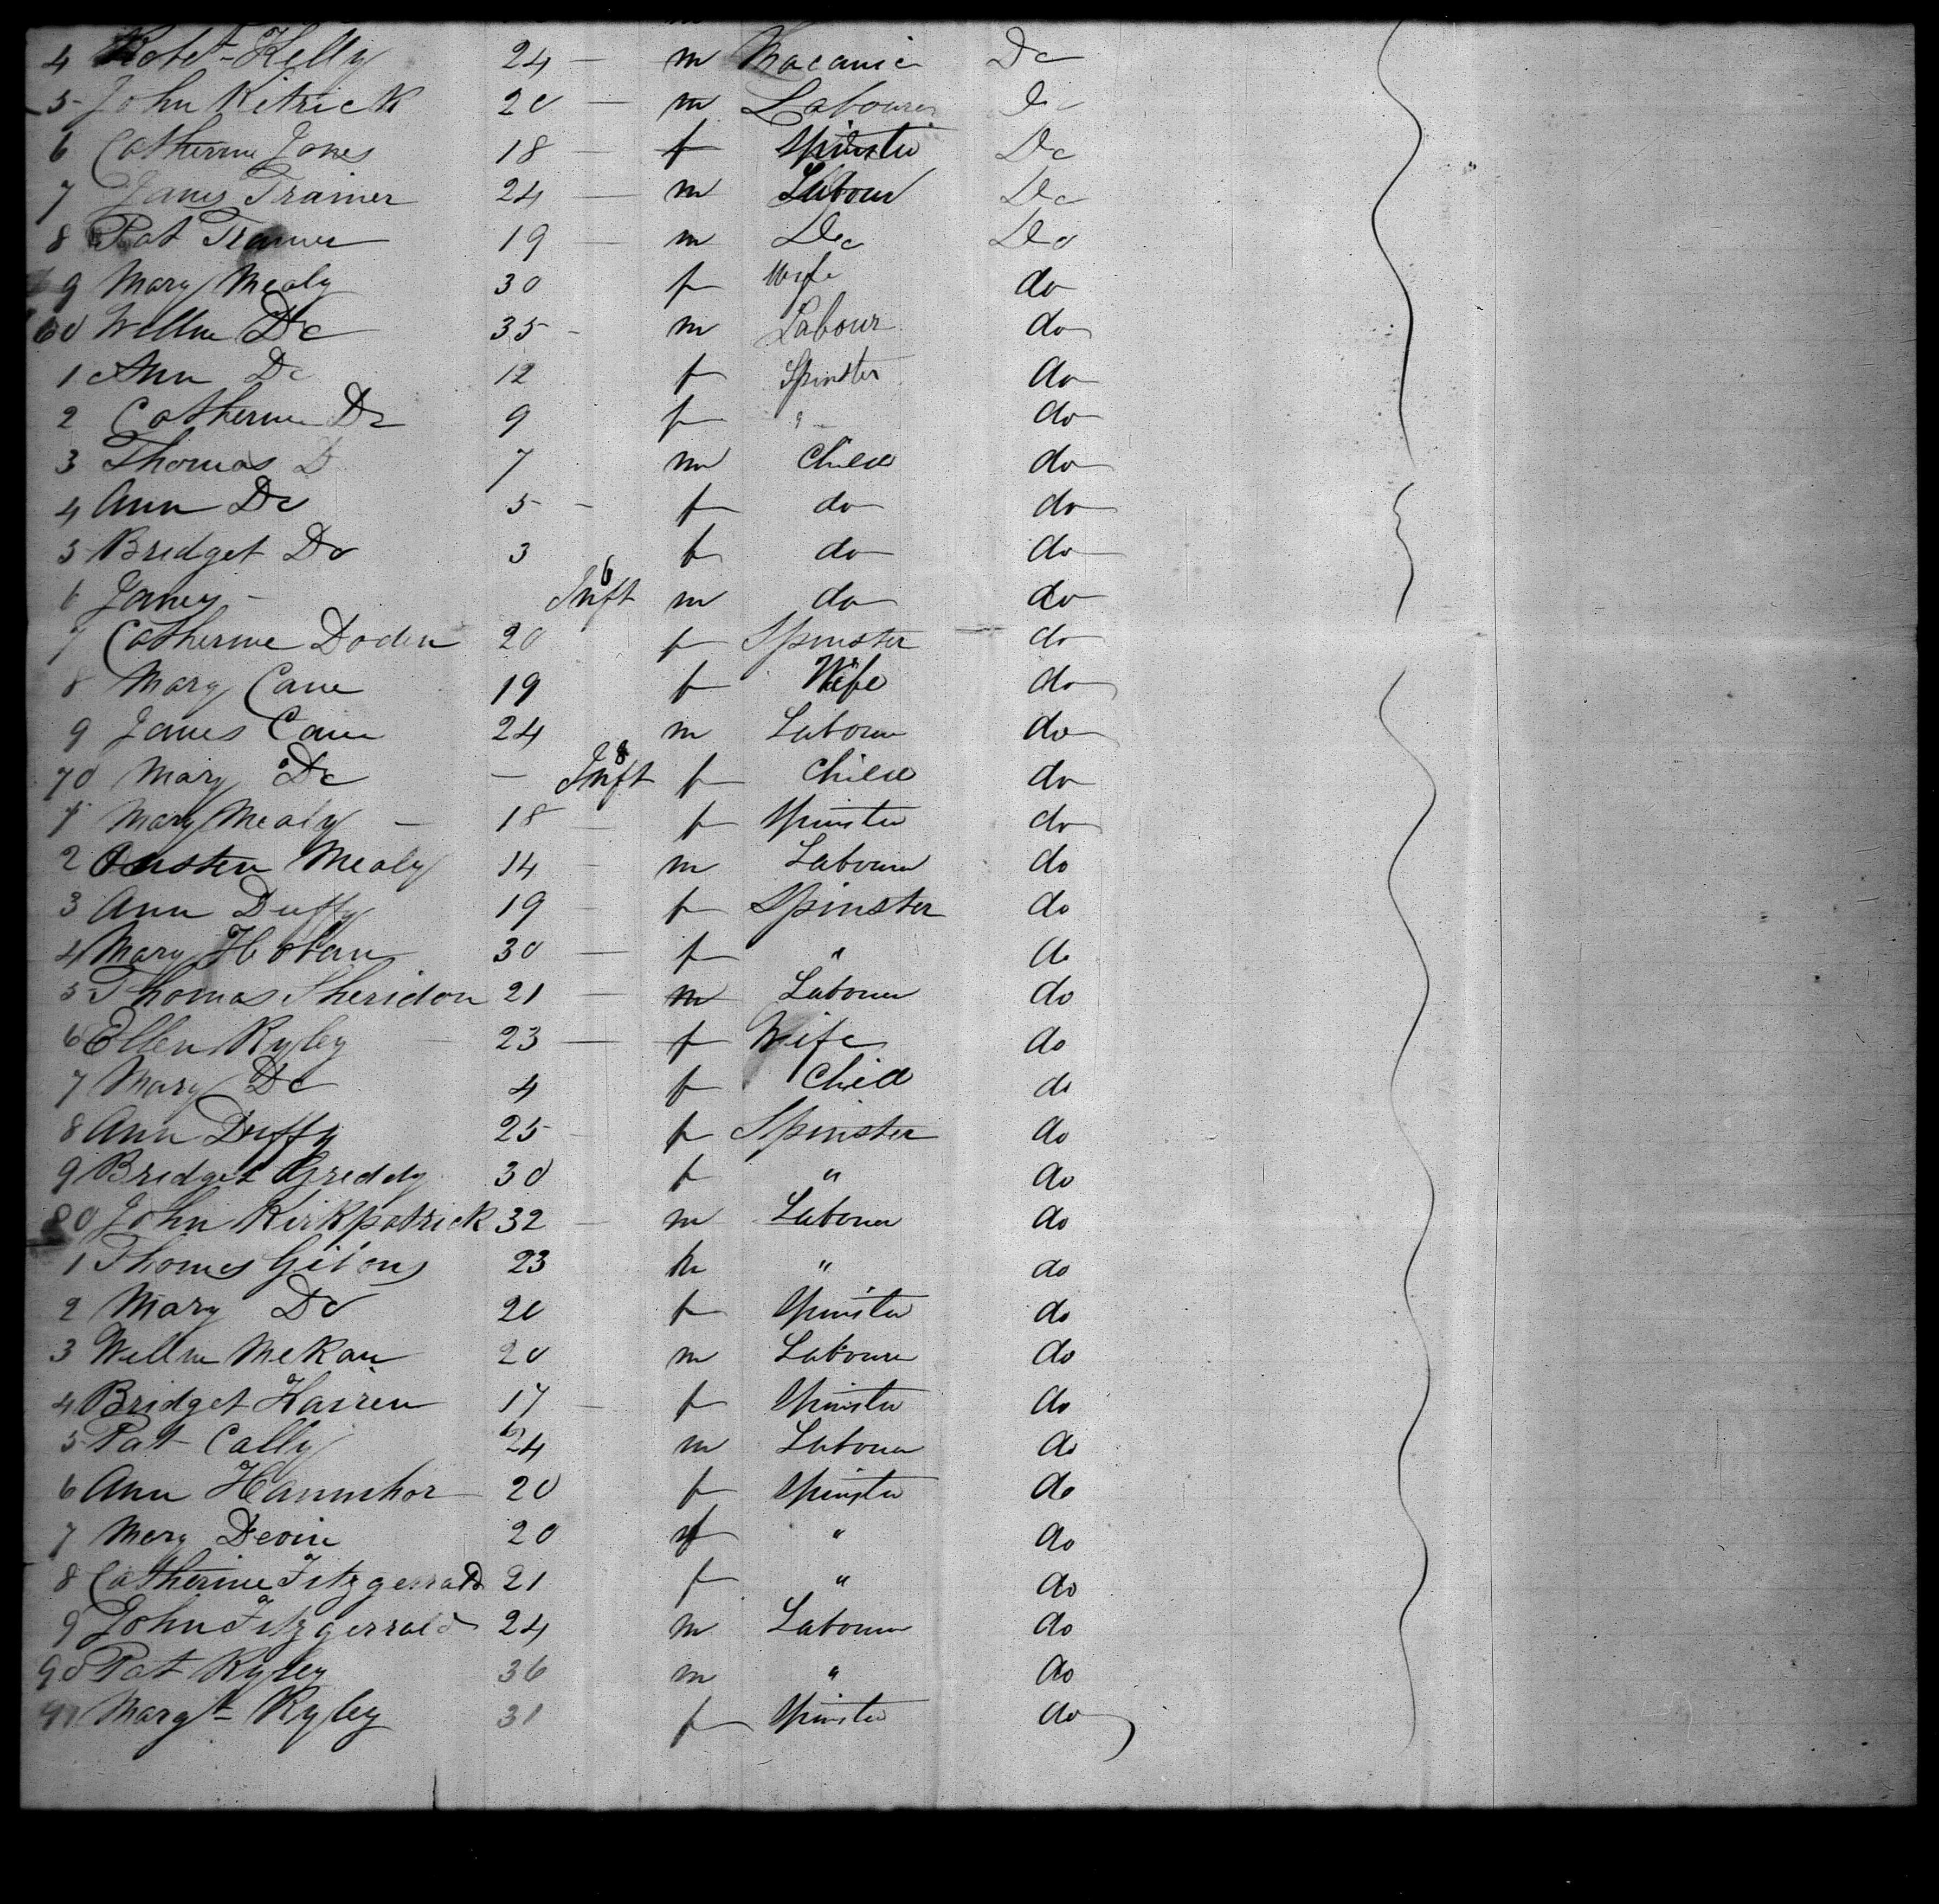 4 Robt Kelly 24 — m Macanic Do
5 John Kitrick 20 — m Labourer Do
6 Catherine Jones 18 — f Spinster Do
7 James Trainer 24 — m Labour Do
8 Pat Trainer 19 — m Do Do
9 Mary Mealy 30 f Wife do
60 Willm Do 35 - m Labour do
1 Ann Do 12 f Spinster do
2 Catherine Do 9 f " do
3 Thomas D 7 m Child do
4 Ann Do 5 - f do do
5 Bridget Do 3 f do do
6 James - Inft 6 m do do
7 Catherine Doden 20 f Spinster do
8 Mary Cane 19 f Wife do
9 James Cain 24 m Labour do
70 Mary Do — Inft 8 f Child do
1 Mary Mealy — 18 — f Spinster do
2 Austen Mealy 14 — m Labour do
3 Ann Duffy 19 — f Spinster do
4 Mary Hoban 30 — f " do
5 Thomas Sheridon 21 — m Labour do
6 Ellen Ryley 23 — f Wife do
7 Mary Do 4 f Child do
8 Ann Duffy 25 - f Spinster do
9 Bridget Greddy 30 f " do
80 John Kirkpatrick 32 — m Labour do
1 Thomas Gibons 23 m " do
2 Mary Do 20 f Spinster do
3 Willm McKan 20 m Labour do
4 Bridget Hairen 17 — f Spinster do
5 Pat Cally 24 m Labour do
6 Ann 20 f Spinster do
7 Mery Devin 20 f " do
8 Catherine Fitzgerrald 21 f " do
9 John Fitzgerrald 24 m Labour do
90 Pat Ryley 36 m " do
91 Margt Ryley 31 f Spinster do